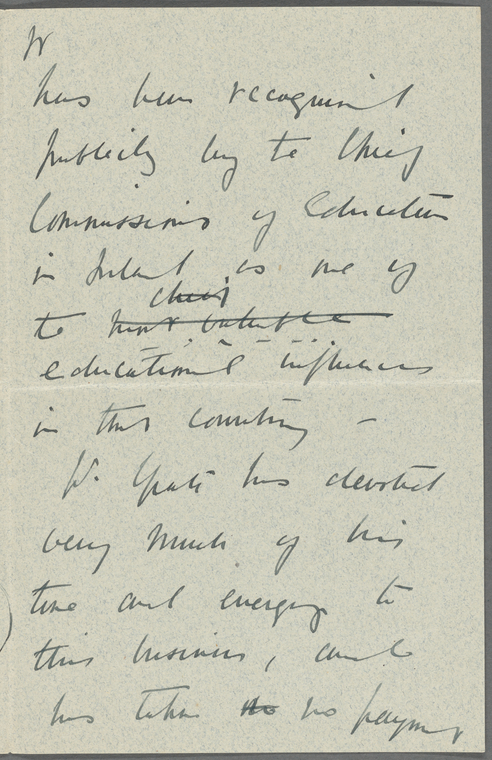 W
has been recognised
publicly by the Chief
Commissioners of Education
in Ireland as one of
chief
the most valuable
educational influences
in this country –
Dr. Yeats has devoted
very much of his
time and energy to
this business, and
has taken no no payment